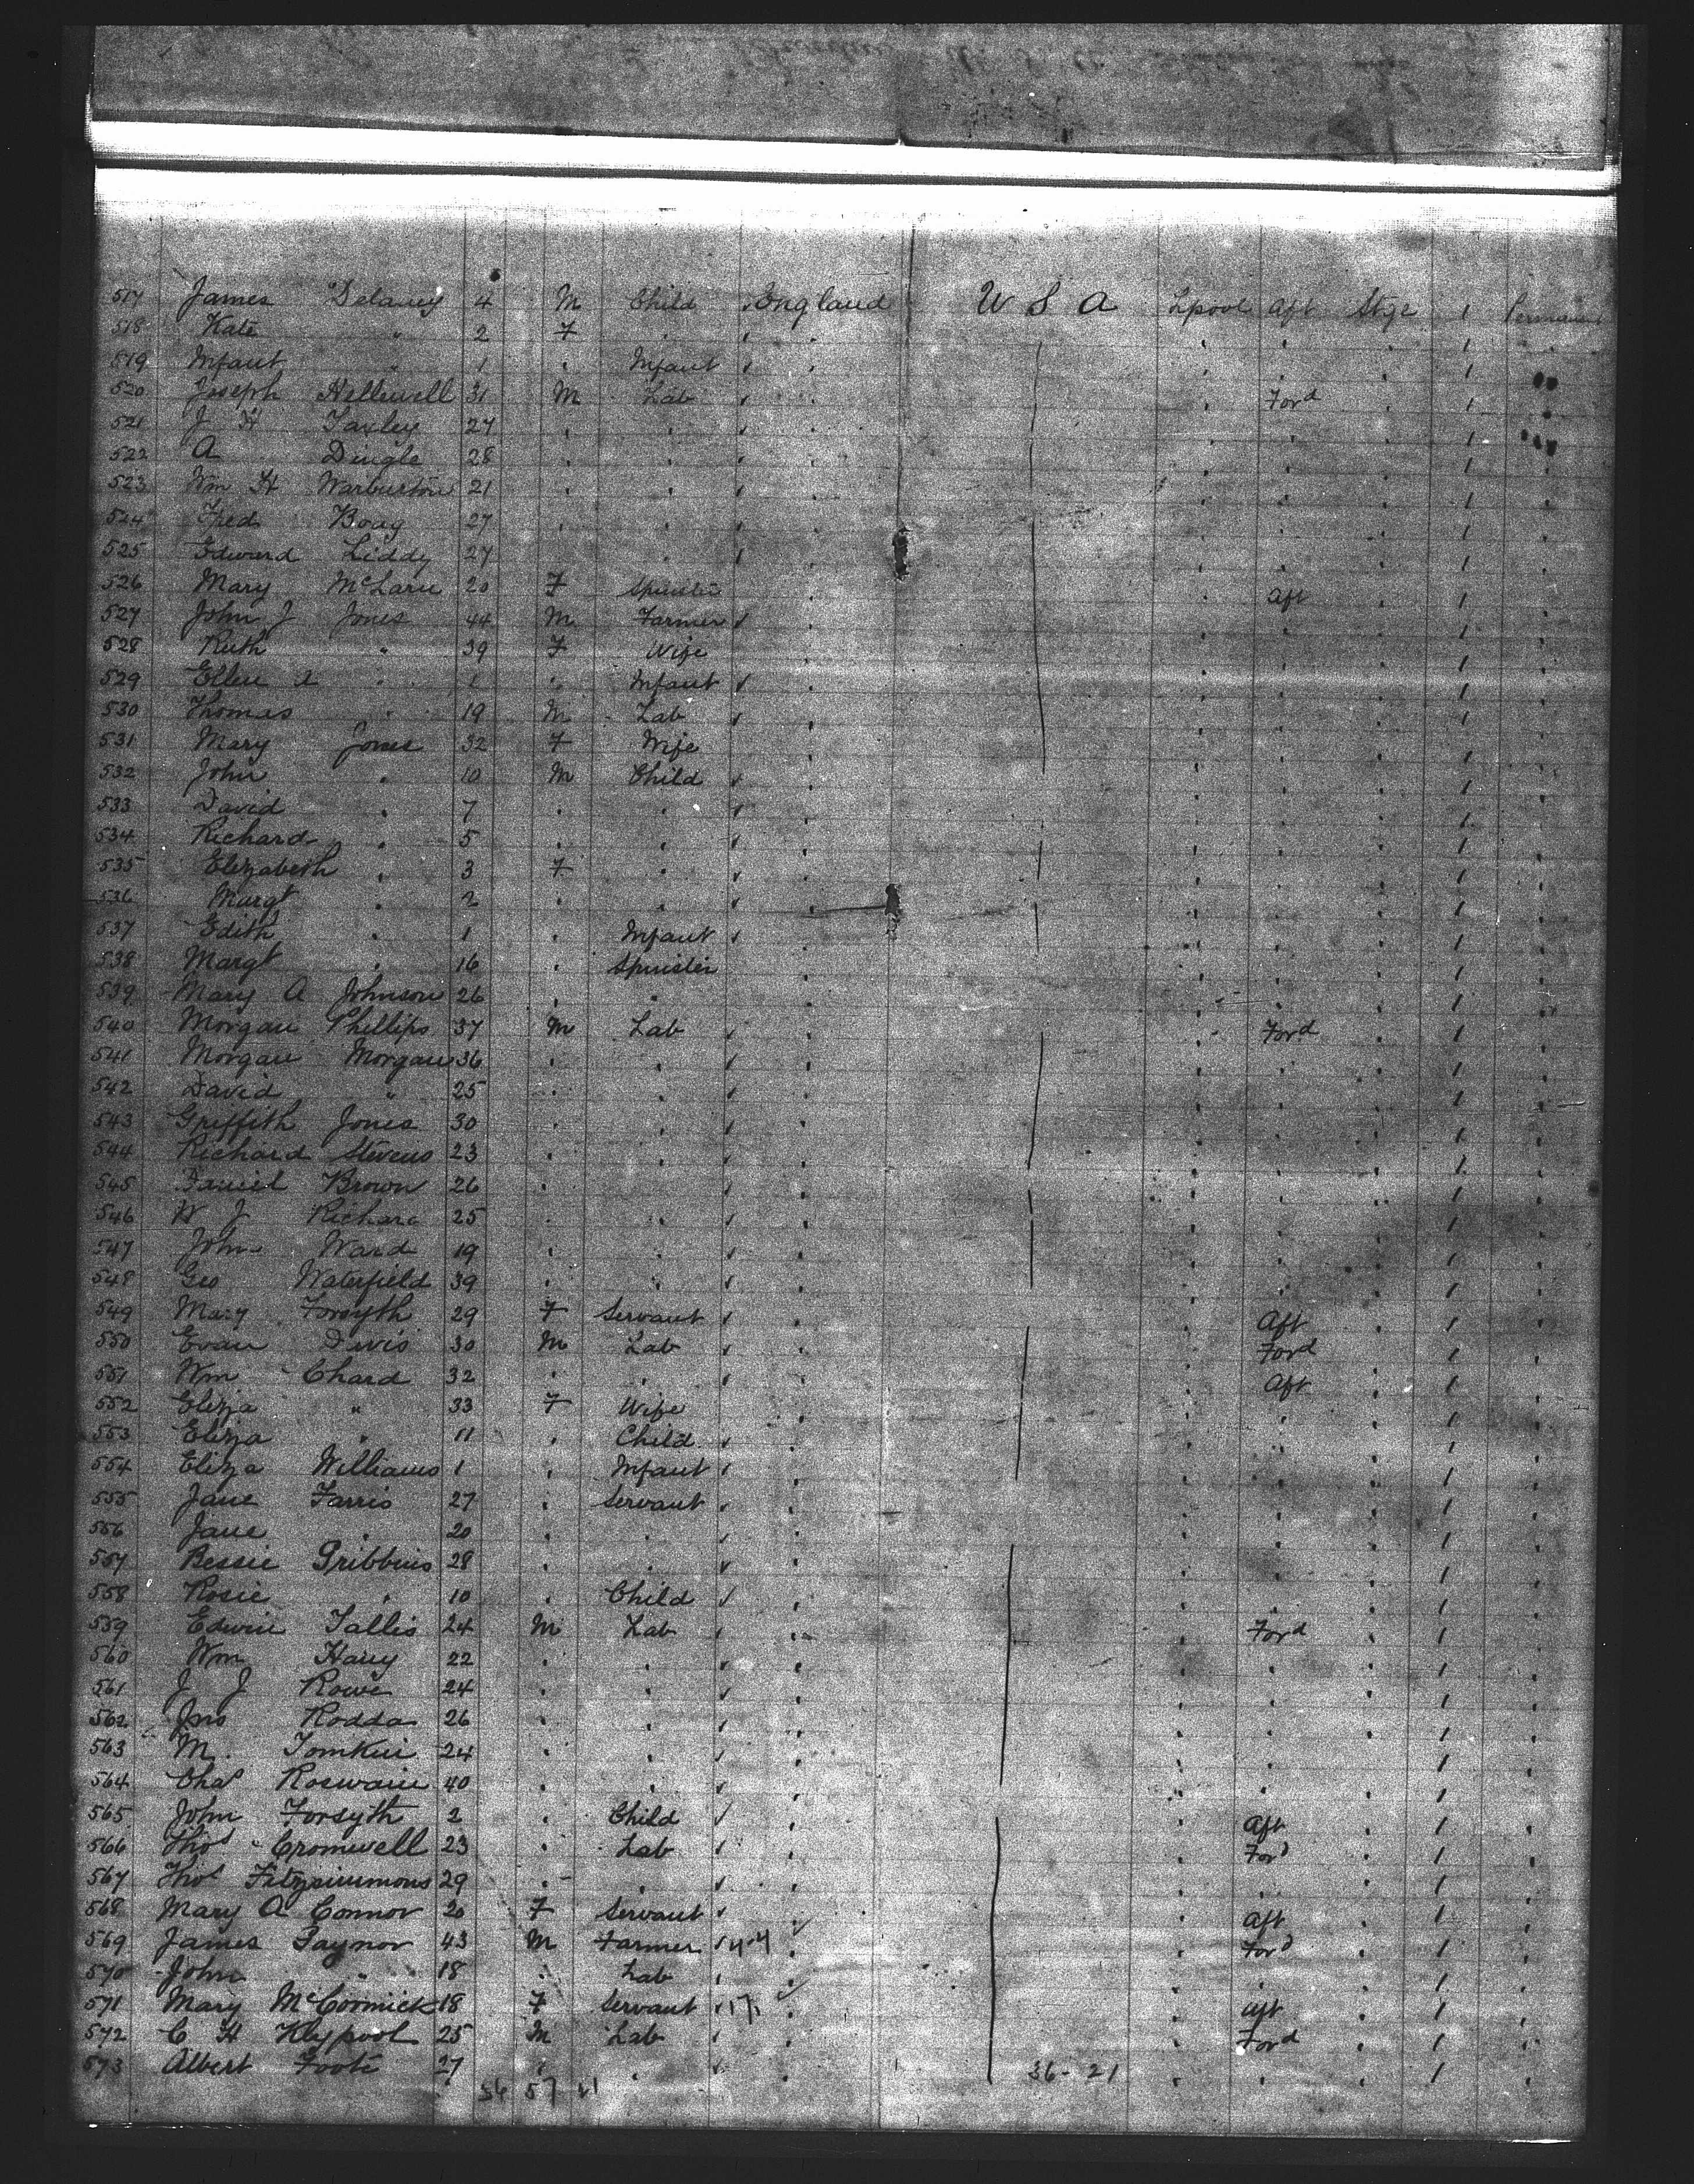 517 James Delaney 4 M Child England U S A Lpool Aft Stge 1 Permanent
518 Kate " 2 F " " 1
519 Infant " 1 " Infant " 1
520 Joseph Helliwell 31 M Lab " Ford " 1
521 J H Taxley 27 " " " 1
522 A Dingle 28 " " " 1
523 Wm H Warburton 21 " " " 1
524 Fred Boag 27 " " " 1
525 Edward Liddy 27 " " 1
526 Mary McLarn 20 F Spinster " Aft " 1
527 John J Jones 44 M Farmer " 1
528 Ruth " 39 F Wife " 1
529 Ellen " 1 " Infant " 1
530 Thomas " 19 M Lab " 1
531 Mary Jones 32 F Wife " 1
532 John " 10 M Child " 1
533 David " 7 " " " 1
534 Richard " 5 " " " 1
535 Elizabeth " 3 F " " 1
536 Margt " 2 " " " 1
537 Edith " 1 " Infant " 1
538 Margt " 16 " Spinster " 1
539 Mary A Johnson 26 " " " 1
540 Morgan Phillips 37 M Lab " Ford " 1
541 Morgan Morgan 36 " " " 1
542 David " 25 " " " 1
543 Griffith Jones 30 " " " 1
544 Richard Stevens 23 " " " 1
545 Daniel Brown 26 " " " 1
546 W J Richard 25 " " " 1
547 John Ward 19 " " " 1
548 Geo Waterfield 39 " " " 1
549 Mary Forsyth 29 F Servant " Aft " 1
550 Evan Davis 30 M Lab " Ford " 1
551 Wm Chard 32 " " " Aft " 1
552 Eliza " 33 F Wife " 1
553 Eliza " 11 " Child " 1
554 Eliza Williams 1 " Infant " 1
555 Jane Farris 27 " Servant " 1
556 Jane " 20 " " " 1
557 Bessie Gribbins 28 " " " 1
558 Rosie " 10 " Child " 1
559 Edwin Tallis 24 M Lab " Ford " 1
560 Wm Harry 22 " " " 1
561 J J Rowe 24 " " " 1
562 Jno Rodda 26 " " " 1
563 M. Tomkin 24 " " " 1
564 Chas Roswain 40 " " " 1
565 John Forsyth 2 " Child " Aft " 1
566 Thos Cromwell 23 " Lab " Ford " 1
567 Thos Fitzsimmons 29 " " " 1
568 Mary A Connor 20 F Servant " Aft " 1
569 James Gaynor 43 M Farmer " Ford " 1
570 John " 18 " Lab " 1
571 Mary McCormick 18 F Servant " Aft " 1
572 C H Klypool 25 M Lab " Ford " 1
573 Albert Foote 27 " " " 36-21 " 1
36 57 21